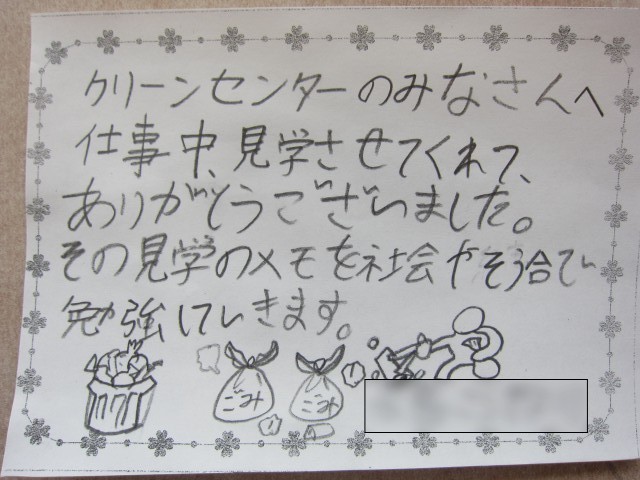 クリーンセンターのみなさんへ
仕事中、見学させてくれて、
ありがとうございました。
その見学のメモを社会やそう合で
勉強していきます。
ごみ
ごみ